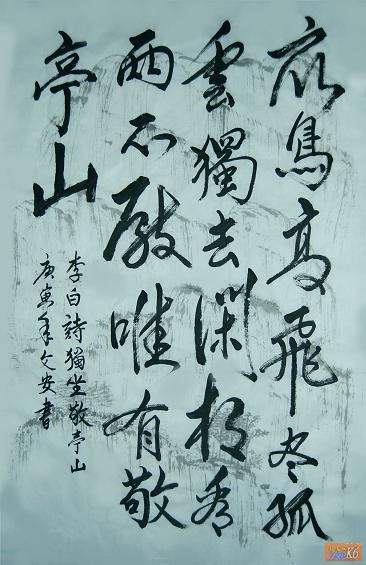 衆鳥高飛尽孤
雲獨去閑相看
兩不厭唯有敬
亭山
李白詩獨坐敬亭山
庚寅年文安書
K6